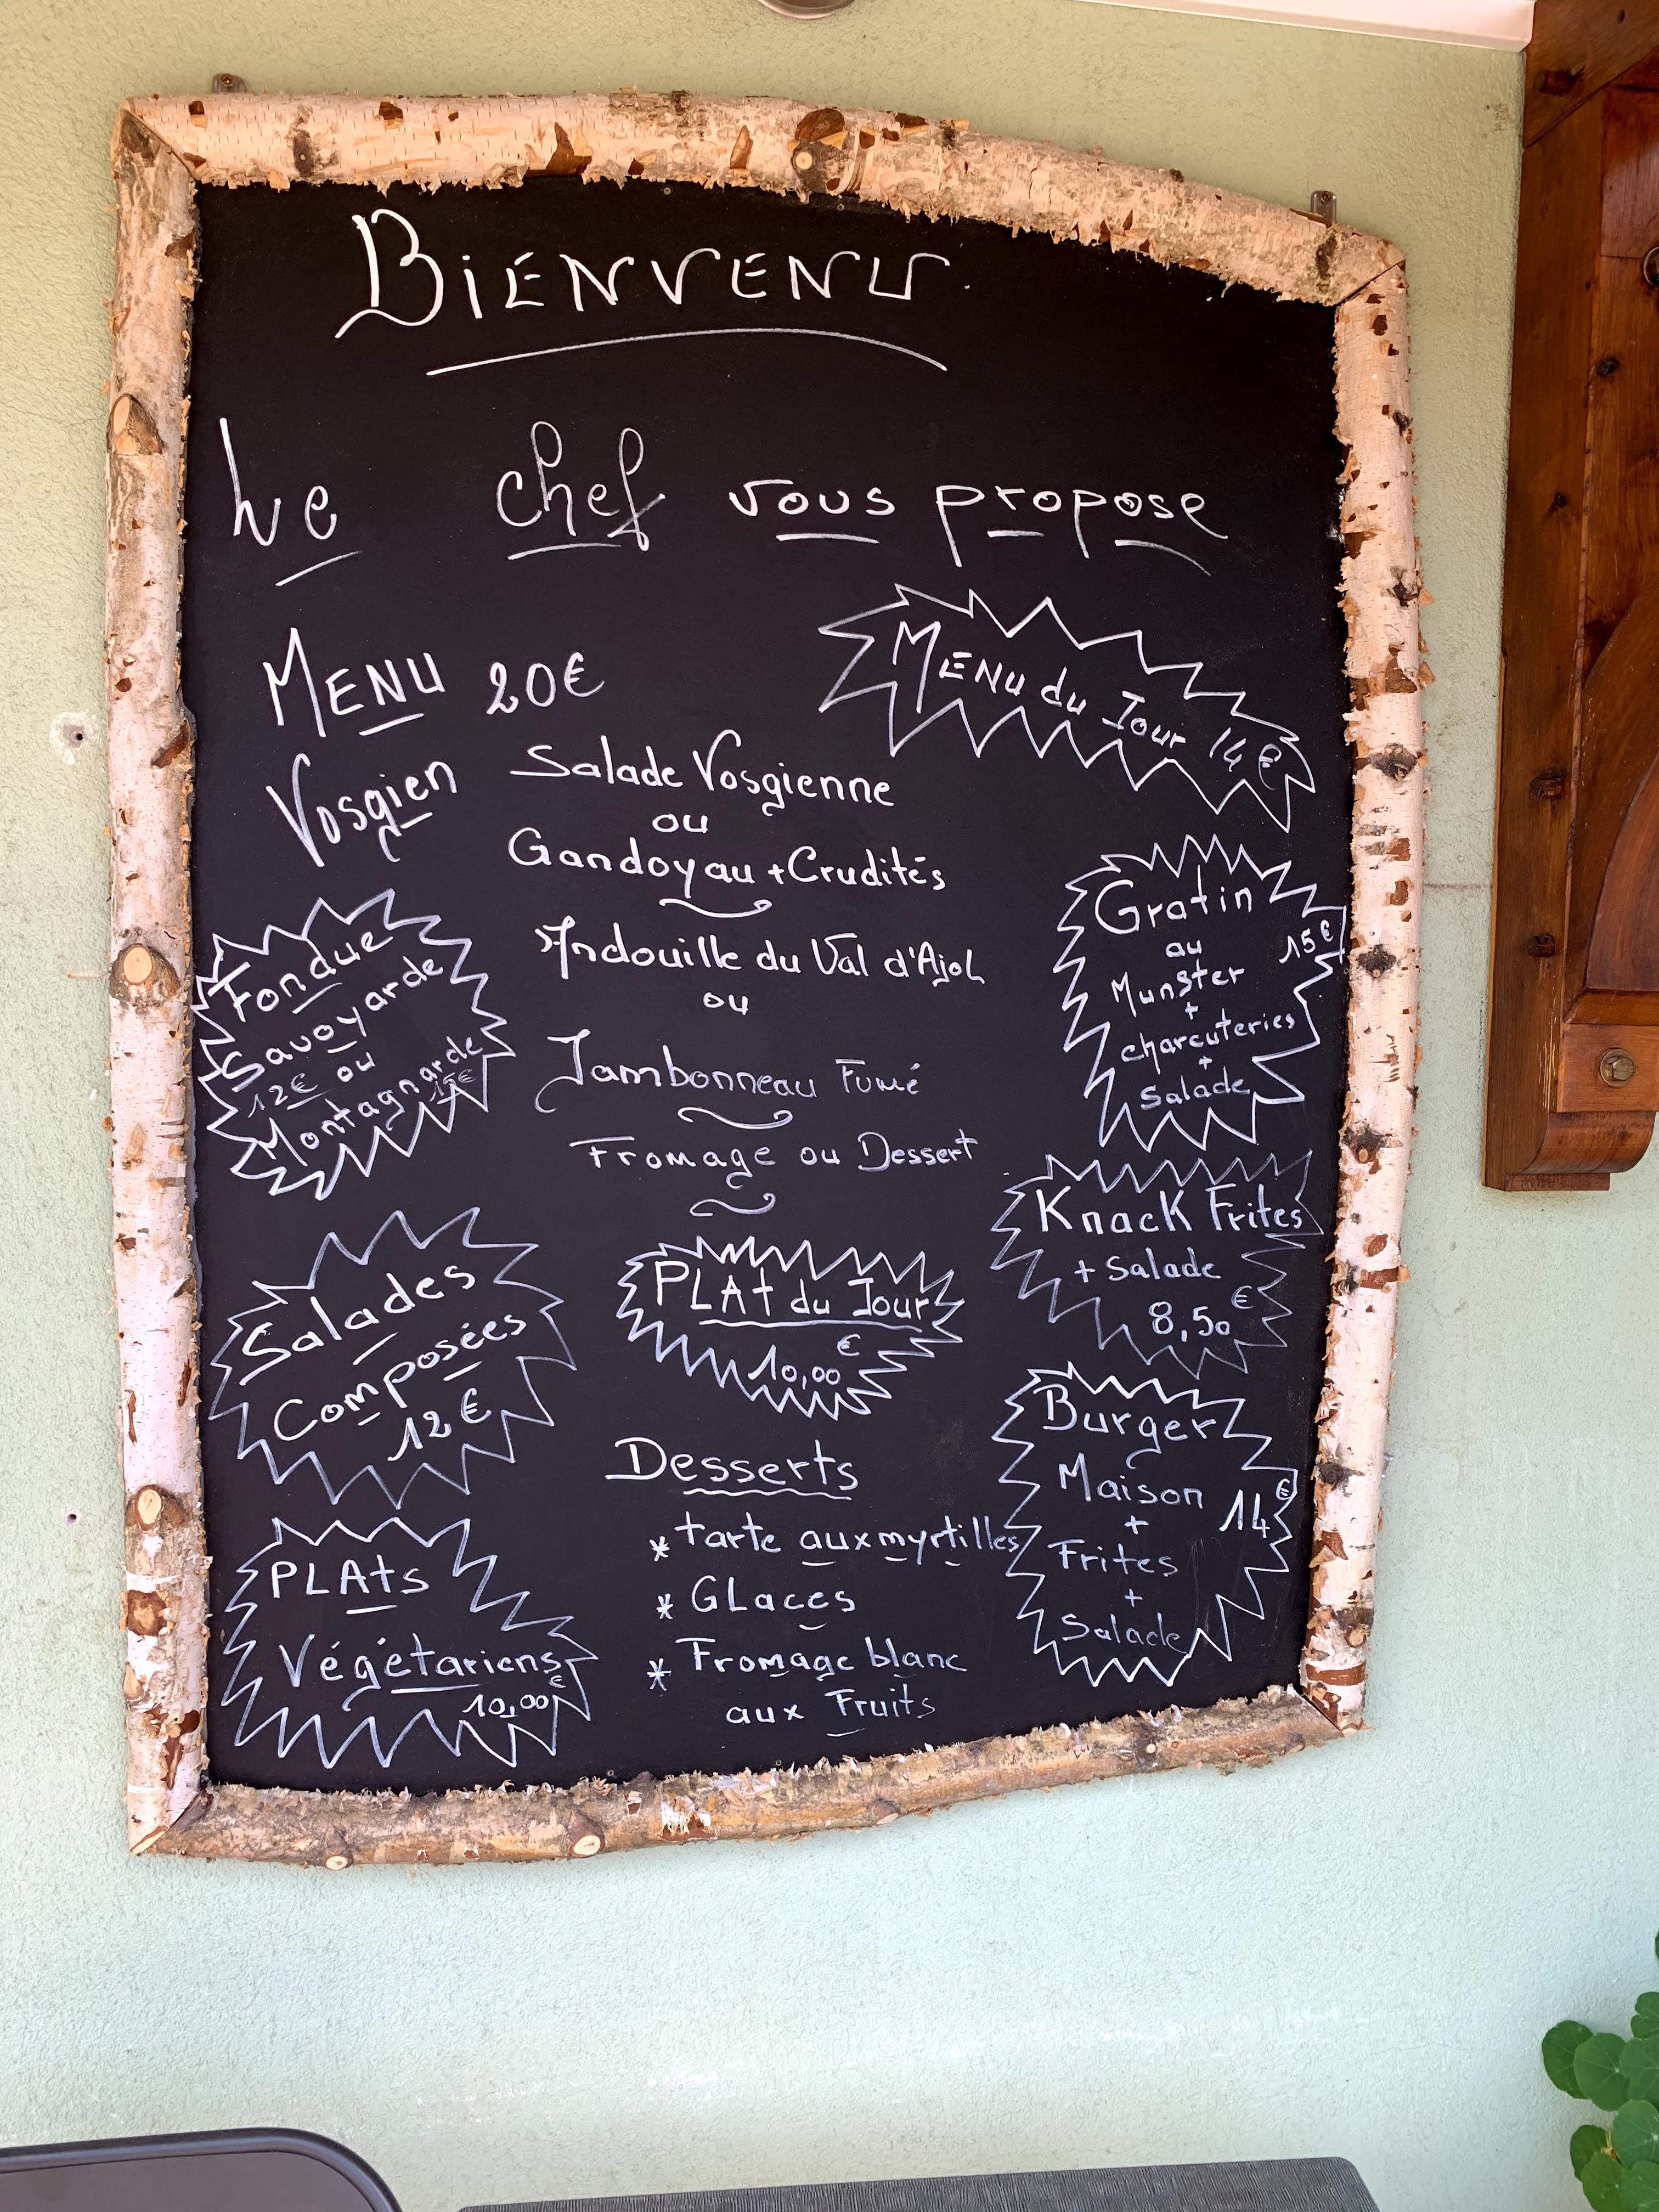 BIENVENU
Le chef vous propose
MENU 20€
Vosgien
Menu du Jour 14€
Salade Vosgienne
ou
Gandoyau + Crudités
Andouille du Val d'Ajol
ou
Jambonneau Fumé
Fromage ou Dessert
Fondue
Savoyarde
12€ ou
Montagnarde
15€
Gratin
15€
au
Munster
+
charcuteries
+
Salade
Knack Frites
+ Salade
8,50€
Salades
Composées
12€
PLAt du Jour
10,00€
Burger
Maison
14€
+
Frites
+
Salade
PLAts
Végétariens
10,00€
Desserts
* tarte aux myrtilles
* GLaces
* Fromage blanc
aux Fruits